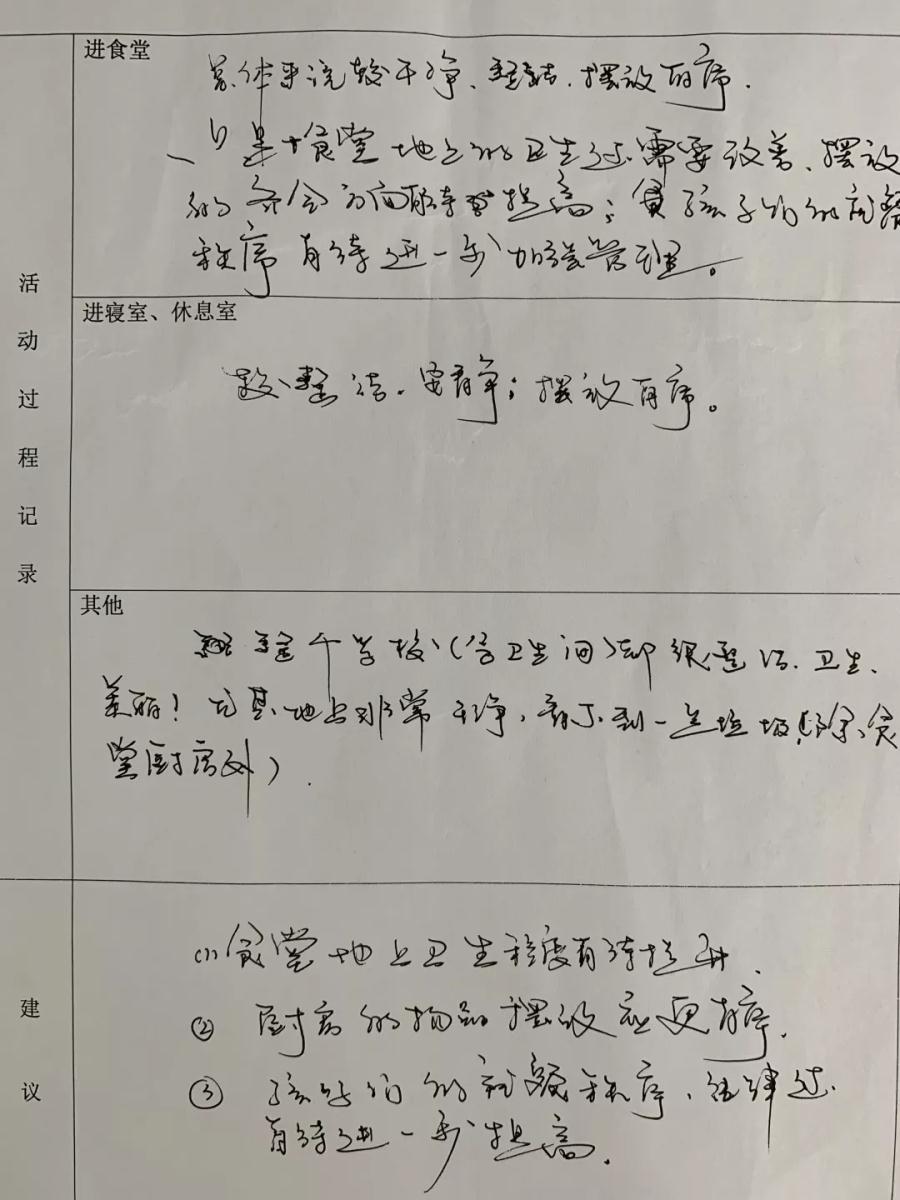 进食堂
总体来说较干净、整洁、摆放有序.
但是食堂地上的卫生还需要改善、摆放
的 方面有待提高；孩子们的就餐
秩序有待进一步加强管理。
活动过程记录
进寝室、休息室
较整洁、安静；摆放有序。
其他
整个学校(含卫生间)都很整洁、卫生、
美丽！尤其地上非常干净，看不到一点垃圾(除食
堂厨房外).
建议
(1)食堂地上卫生程度有待提升.
② 厨房的物品摆放应更有序.
③ 孩子们的就餐秩序、纪律还
有待进一步提高.